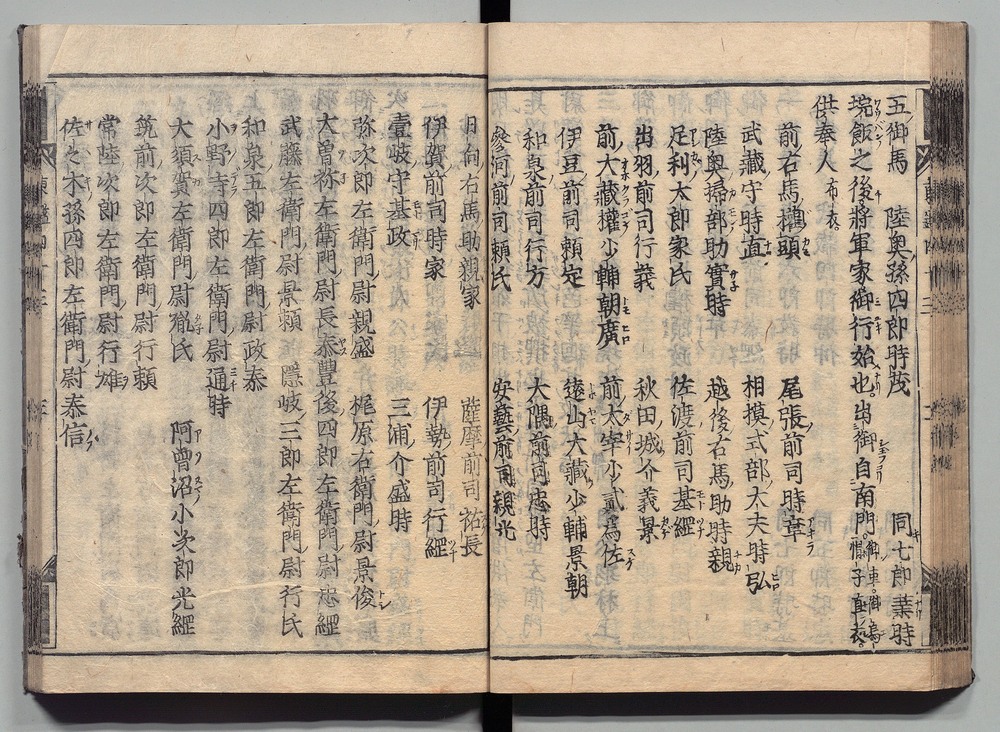 五御馬 陸奥孫四郎時茂 同七郎業時
埦飯之後將軍家御行始也。出御自南門。御車。御烏帽子直衣。
供奉人布衣
前右馬權頭 尾張前司時章
武藏守時直 相摸式部大夫時弘
陸奥掃部助實時 越後右馬助時親
足利太郎家氏 佐渡前司基綱
出羽前司行義 秋田城介義景
前大藏權少輔朝廣 前太宰少貳爲佐
伊豆前司頼定 遠山大藏少輔景朝
和泉前司行方 大隅前司忠時
參河前司頼氏 安藝前司親光
日向右馬助親家 薩摩前司祐長
伊賀前司時家 伊勢前司行綱
壹岐守基政 三浦介盛時
弥次郎左衛門尉親盛 梶原右衛門尉景俊
大曾祢左衛門尉長泰 豊後四郎左衛門尉忠綱
武藤左衛門尉景頼 隠岐三郎左衛門尉行氏
和泉五郎左衛門尉政泰
小野寺四郎左衛門尉通時
大須賀左衛門尉胤氏 阿曾沼小次郎光綱
筑前次郎左衛門尉行頼
常陸次郎左衛門尉行雄
佐々木孫四郎左衛門尉泰信